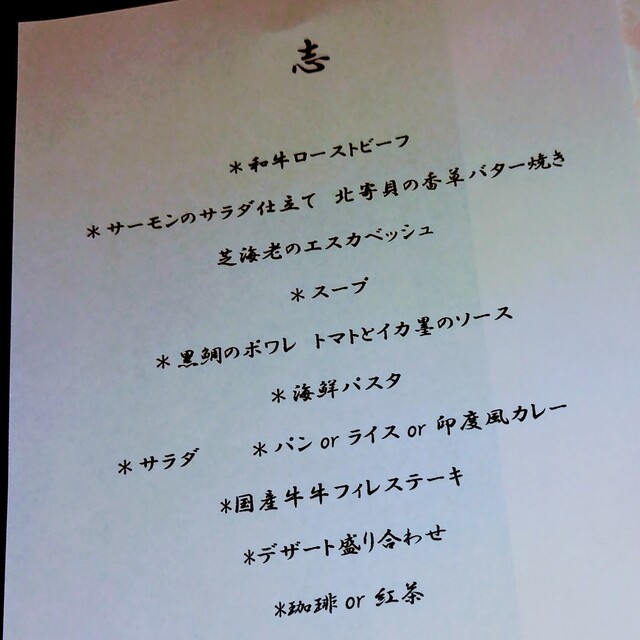 志
*和牛ローストビーフ
*サーモンのサラダ仕立て 北寄貝の香草バター焼き
芝海老のエスカベッシュ
*スープ
*黒鯛のポワレ トマトとイカ墨のソース
*海鮮パスタ
*サラダ *パン or ライス or 印度風カレー
*国産牛牛フィレステーキ
*デザート盛り合わせ
*珈琲 or 紅茶